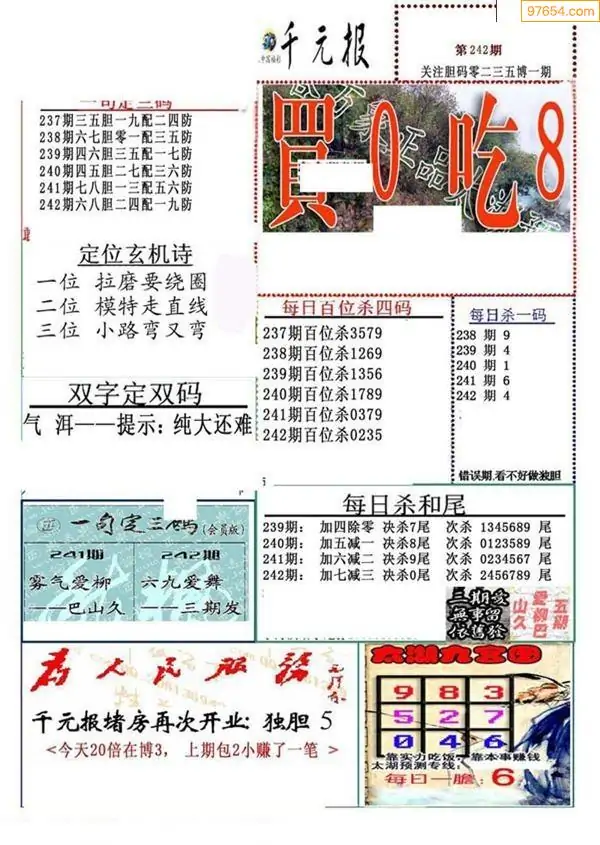 97654.com
千元报
第242期
关注胆码零二三五博一期
一句定三码
237期三五胆一九配二四防
238期六七胆零一配三五防
239期四六胆三五配一七防
240期四五胆二七配三六防
241期七八胆一三配五六防
242期六八胆二四配一九防
買0吃8
定位玄机诗
一位 拉磨要绕圈
二位 模特走直线
三位 小路弯又弯
每日百位杀四码
237期百位杀3579
238期百位杀1269
239期百位杀1356
240期百位杀1789
241期百位杀0379
242期百位杀0235
每日杀一码
238 期 9
239 期 4
240 期 1
241 期 6
242 期 4
错误期,看不好做独胆
双字定双码
气 洱——提示:纯大还难
一句定三码(会员版)
241期
雾气爱柳
——巴山久
242期
六九爱舞
——三期发
每日杀和尾
239期: 加四除零 决杀7尾 次杀 1345689 尾
240期: 加五减一 决杀8尾 次杀 0123589 尾
241期: 加六减二 决杀9尾 次杀 0234567 尾
242期: 加七减三 决杀0尾 次杀 2456789 尾
五湖
愛柳巴
山久
为人民服务
千元报堵房再次开业: 独胆 5
<今天20倍在博3, 上期包2小赚了一笔 >
太湖九宫图
9 8 3
5 2 7
0 4 6
靠实力吃饭, 靠本事赚钱
太湖预测专线:
每日一胆: 6